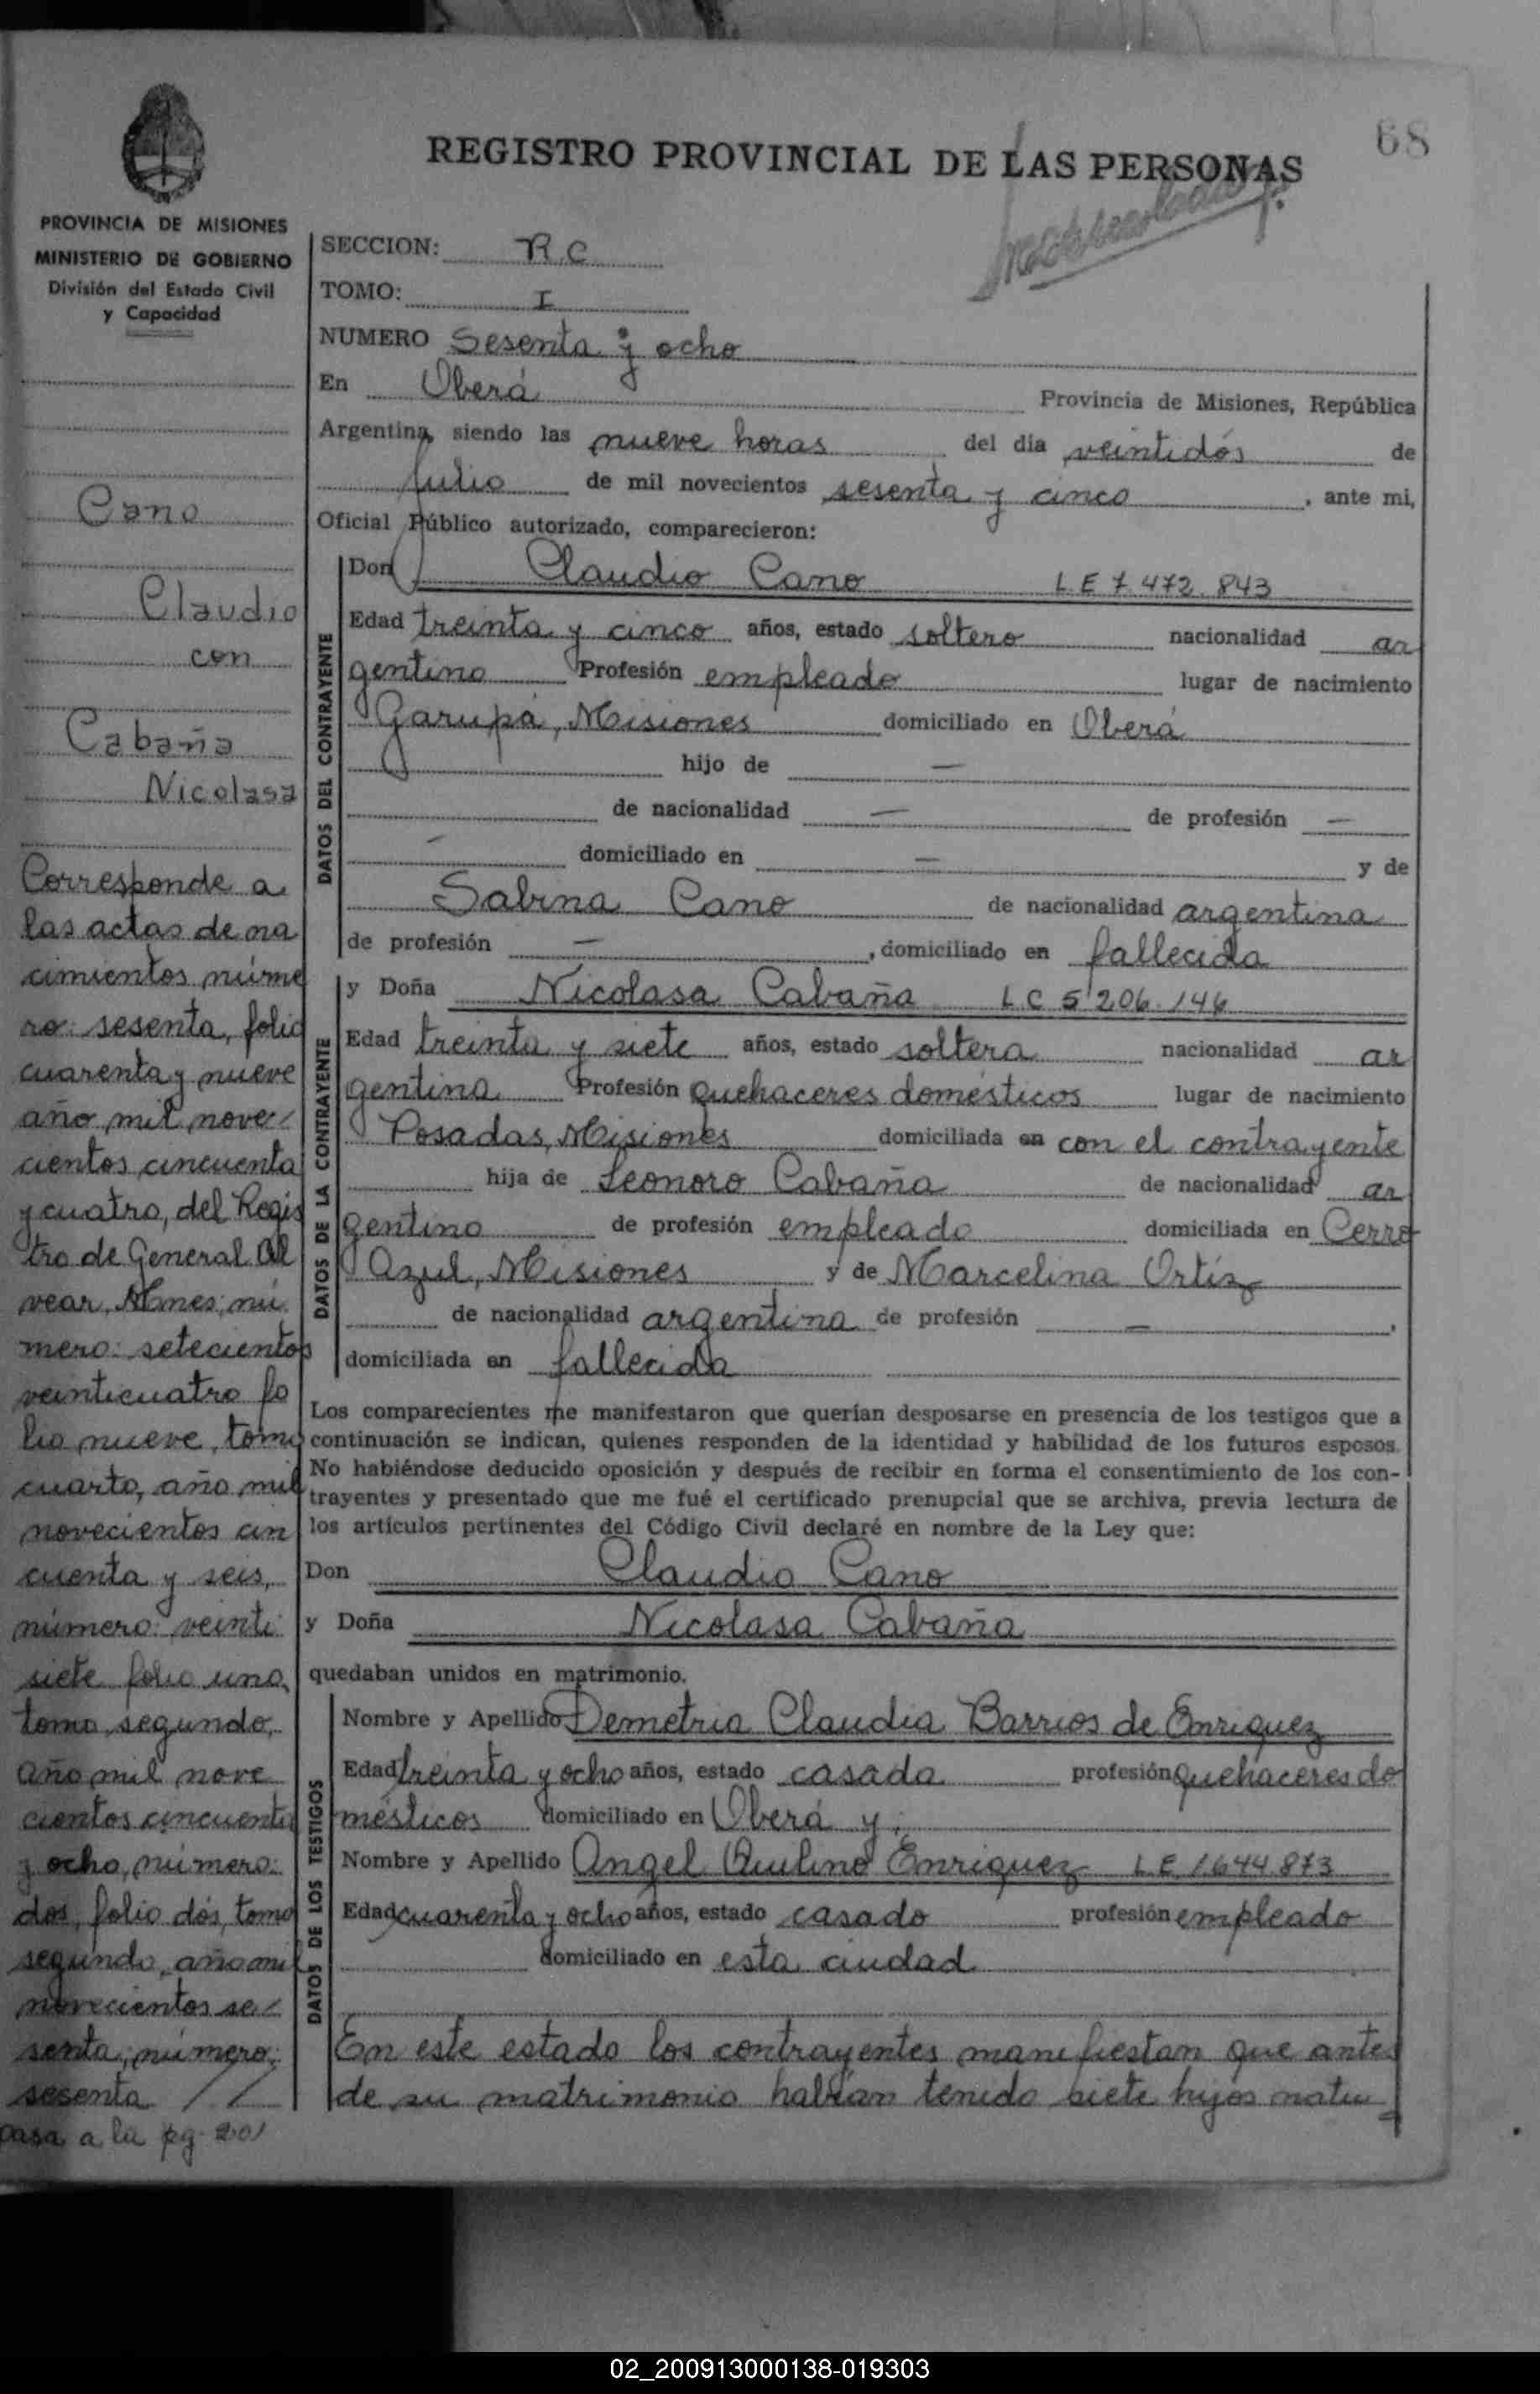 68
REGISTRO PROVINCIAL DE LAS PERSONAS
PROVINCIA DE MISIONES
MINISTERIO DE GOBIERNO
División del Estado Civil
y Capacidad
Cano
Claudio
con
Cabaña
Nicolasa
Corresponde a
las actas de na
cimientos núme
ro: sesenta, folio
cuarenta y nueve
año mil nove-
cientos cincuenta
y cuatro, del Regis
tro de General Al
vear, Mnes; nú
mero: setecientos
veinticuatro fo
lio nueve, tomo
cuarto, año mil
novecientos cin
cuenta y seis,
número: veinti
siete folio uno,
tomo segundo,
año mil nove
cientos cincuenta
y ocho, número:
dos, folio dós, tomo
segundo, año mil
novecientos se-
senta; número:
sesenta //
pasa a la pg. 201
SECCION: R.C.
TOMO: I
NUMERO Sesenta y ocho
En Oberá Provincia de Misiones, República
Argentina, siendo las nueve horas del día veintidós de
Julio de mil novecientos sesenta y cinco, ante mi,
Oficial Público autorizado, comparecieron:
DATOS DEL CONTRAYENTE
Don Claudio Cano L.E 7.472.843
Edad treinta y cinco años, estado soltero nacionalidad ar
gentino Profesión empleado lugar de nacimiento
Garupá, Misiones domiciliado en Oberá
hijo de —
de nacionalidad — de profesión —
— domiciliado en — y de
Sabina Cano de nacionalidad argentina
de profesión —, domiciliado en fallecida
DATOS DE LA CONTRAYENTE
y Doña Nicolasa Cabaña L C 5'206.146
Edad treinta y siete años, estado soltera nacionalidad ar
gentina Profesión quehaceres domésticos lugar de nacimiento
Posadas, Misiones domiciliada en con el contrayente
hija de Leonoro Cabaña de nacionalidad ar
gentino de profesión empleado domiciliada en Cerro
Azul, Misiones y de Marcelina Ortíz
de nacionalidad argentina de profesión —,
domiciliada en fallecida
Los comparecientes me manifestaron que querían desposarse en presencia de los testigos que a
continuación se indican, quienes responden de la identidad y habilidad de los futuros esposos.
No habiéndose deducido oposición y después de recibir en forma el consentimiento de los con-
trayentes y presentado que me fué el certificado prenupcial que se archiva, previa lectura de
los artículos pertinentes del Código Civil declaré en nombre de la Ley que:
Don Claudio Cano
y Doña Nicolasa Cabaña
quedaban unidos en matrimonio.
DATOS DE LOS TESTIGOS
Nombre y Apellido Demetria Claudia Barrios de Enriquez
Edad treinta y ocho años, estado casada profesión quehaceres do
mésticos domiciliado en Oberá y;
Nombre y Apellido Angel Enriquez L.E. 1.644.873
Edad cuarenta y ocho años, estado casado profesión empleado
domiciliado en esta ciudad
En este estado los contrayentes manifiestan que antes
de su matrimonio habían tenido siete hijos natu
02_200913000138-019303